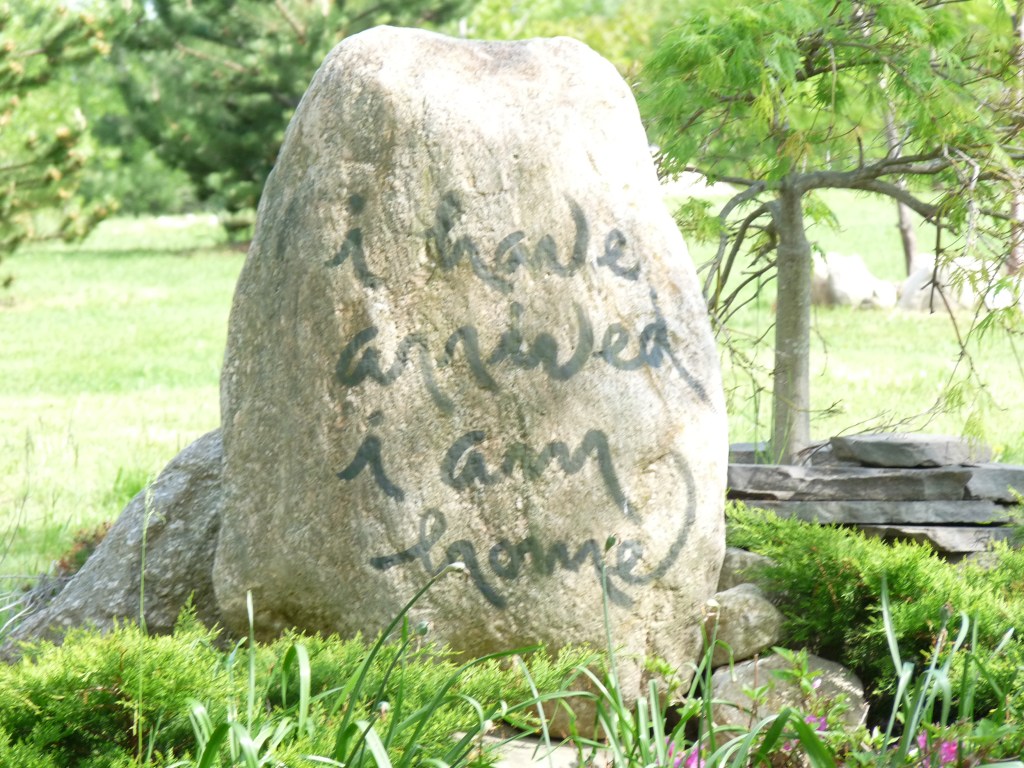 i have
arrived
i am
home